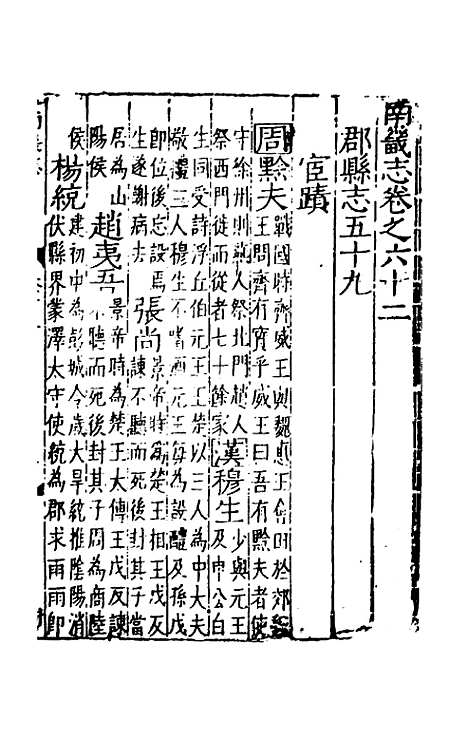 南畿志卷之六十二
郡縣志五十九
宦蹟
周黔夫戰國時齊威王與魏惠王會田於郊魏
王問齊有寳乎威王曰吾有黔夫者使
守徐州則燕人祭北門趙人
祭西門徙而從者七十餘家漢穆生少與元王
及申公白
生同受詩浮丘伯元王王楚以三人為中大夫
敬禮三人穆生不嗜酒元王每為設醴及孫戊
即位後忘設焉
生遂謝病去張尚景帝時為楚王相王戊反
諫不聽而死後封其子當
居為山
陽侯趙夷吾景帝時為楚王太傅王戊反諫
不聽而死後封其子周為商陵
侯楊統建初中為彭城令歲大旱統推陰陽消
伏縣界蒙澤太守使統為郡求雨雨即